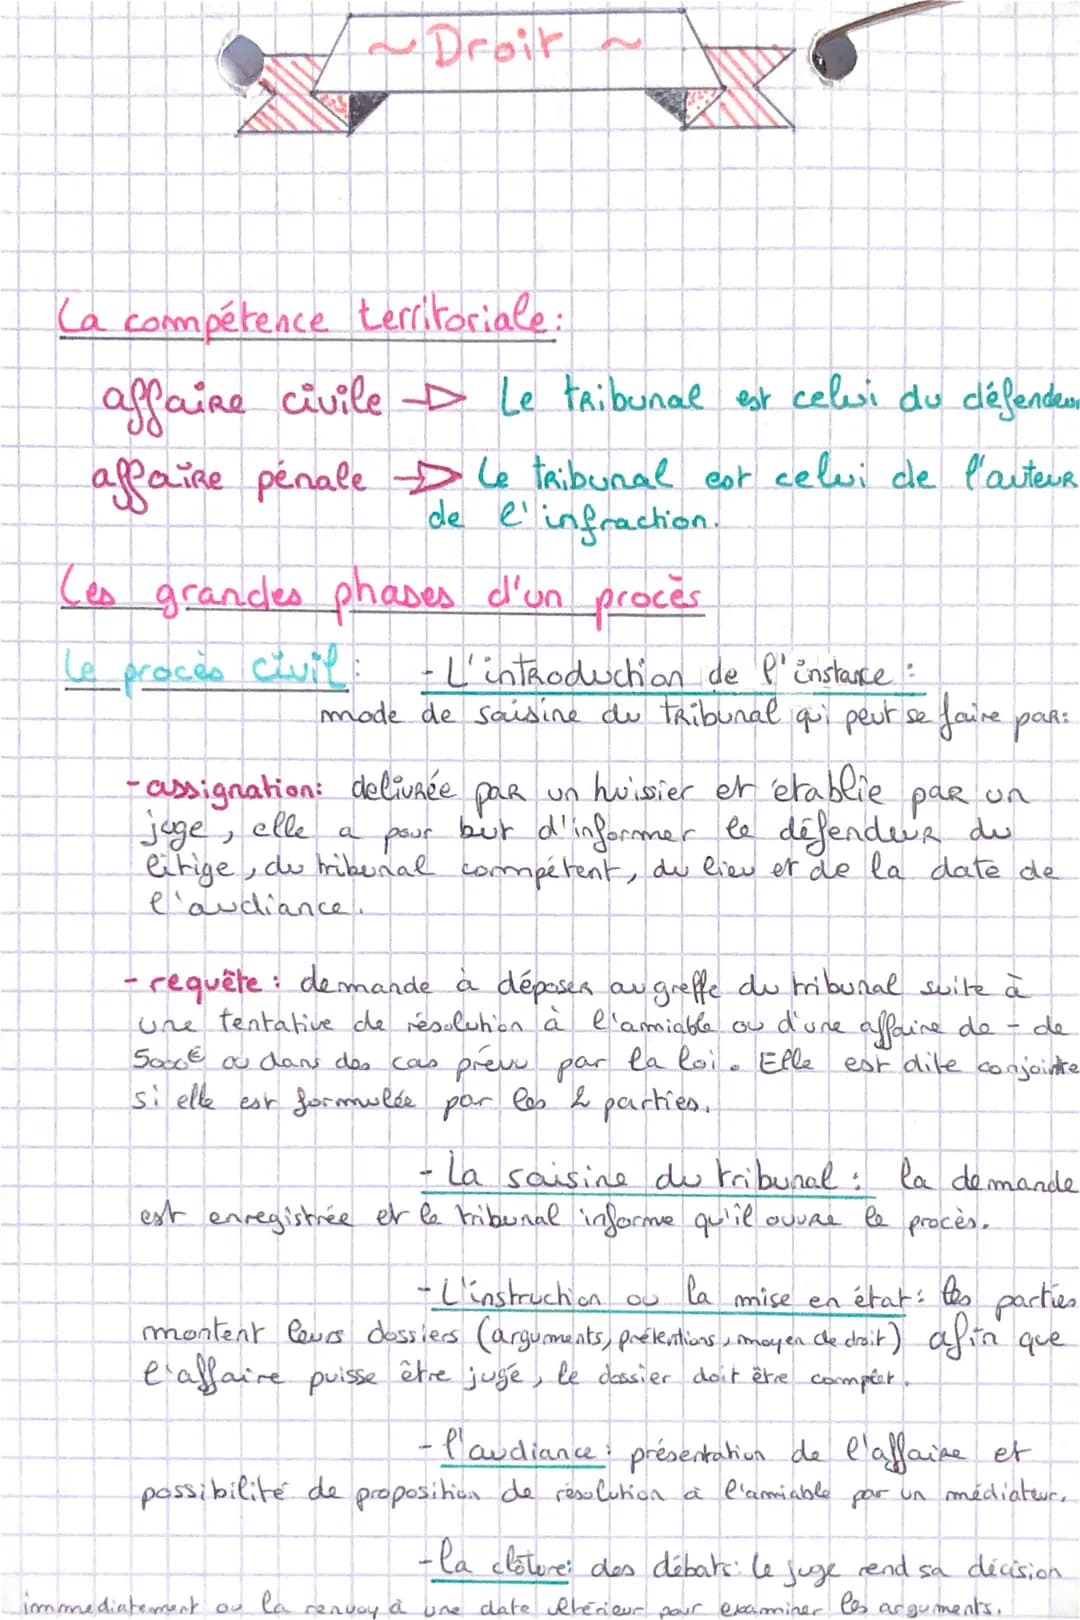 ~ Droit ~
La compétence territoriale:
affaire civile → Le tribunal est celui du défendeur
affaire pénale → Le tribunal est celui de l'auteur
de l'infraction.
Les grandes phases d'un procès
Le procès civil: - L'introduction de l'instance :
mode de saisine du tribunal qui peut se faire par:
- assignation: delivrée par un huissier et établie par un
juge, elle a pour but d'informer le défendeur du
litige, du tribunal compétent, du lieu et de la date de
l'audiance.
- requête : demande à déposer au greffe du tribunal suite à
une tentative de résolution à l'amiable ou d'une affaire de - de
5000€ ou dans des cas prévu par la loi. Elle est dite conjointe
si elle est formulée par les 2 parties.
- La saisine du tribunal : la demande
est enregistrée et le tribunal informe qu'il ouvre le procès.
- L'instruction ou la mise en état: les parties
montent leurs dossiers (arguments, prétentions, moyen de droit) afin que
l'affaire puisse être jugé, le dossier doit être complet.
- l'audiance: présentation de l'affaire et
possibilité de proposition de résolution à l'amiable par un médiateur.
- la clôture: des débats: le juge rend sa décision
immmediatement ou la renvoy à une date ultérieur pour examiner les arguments.